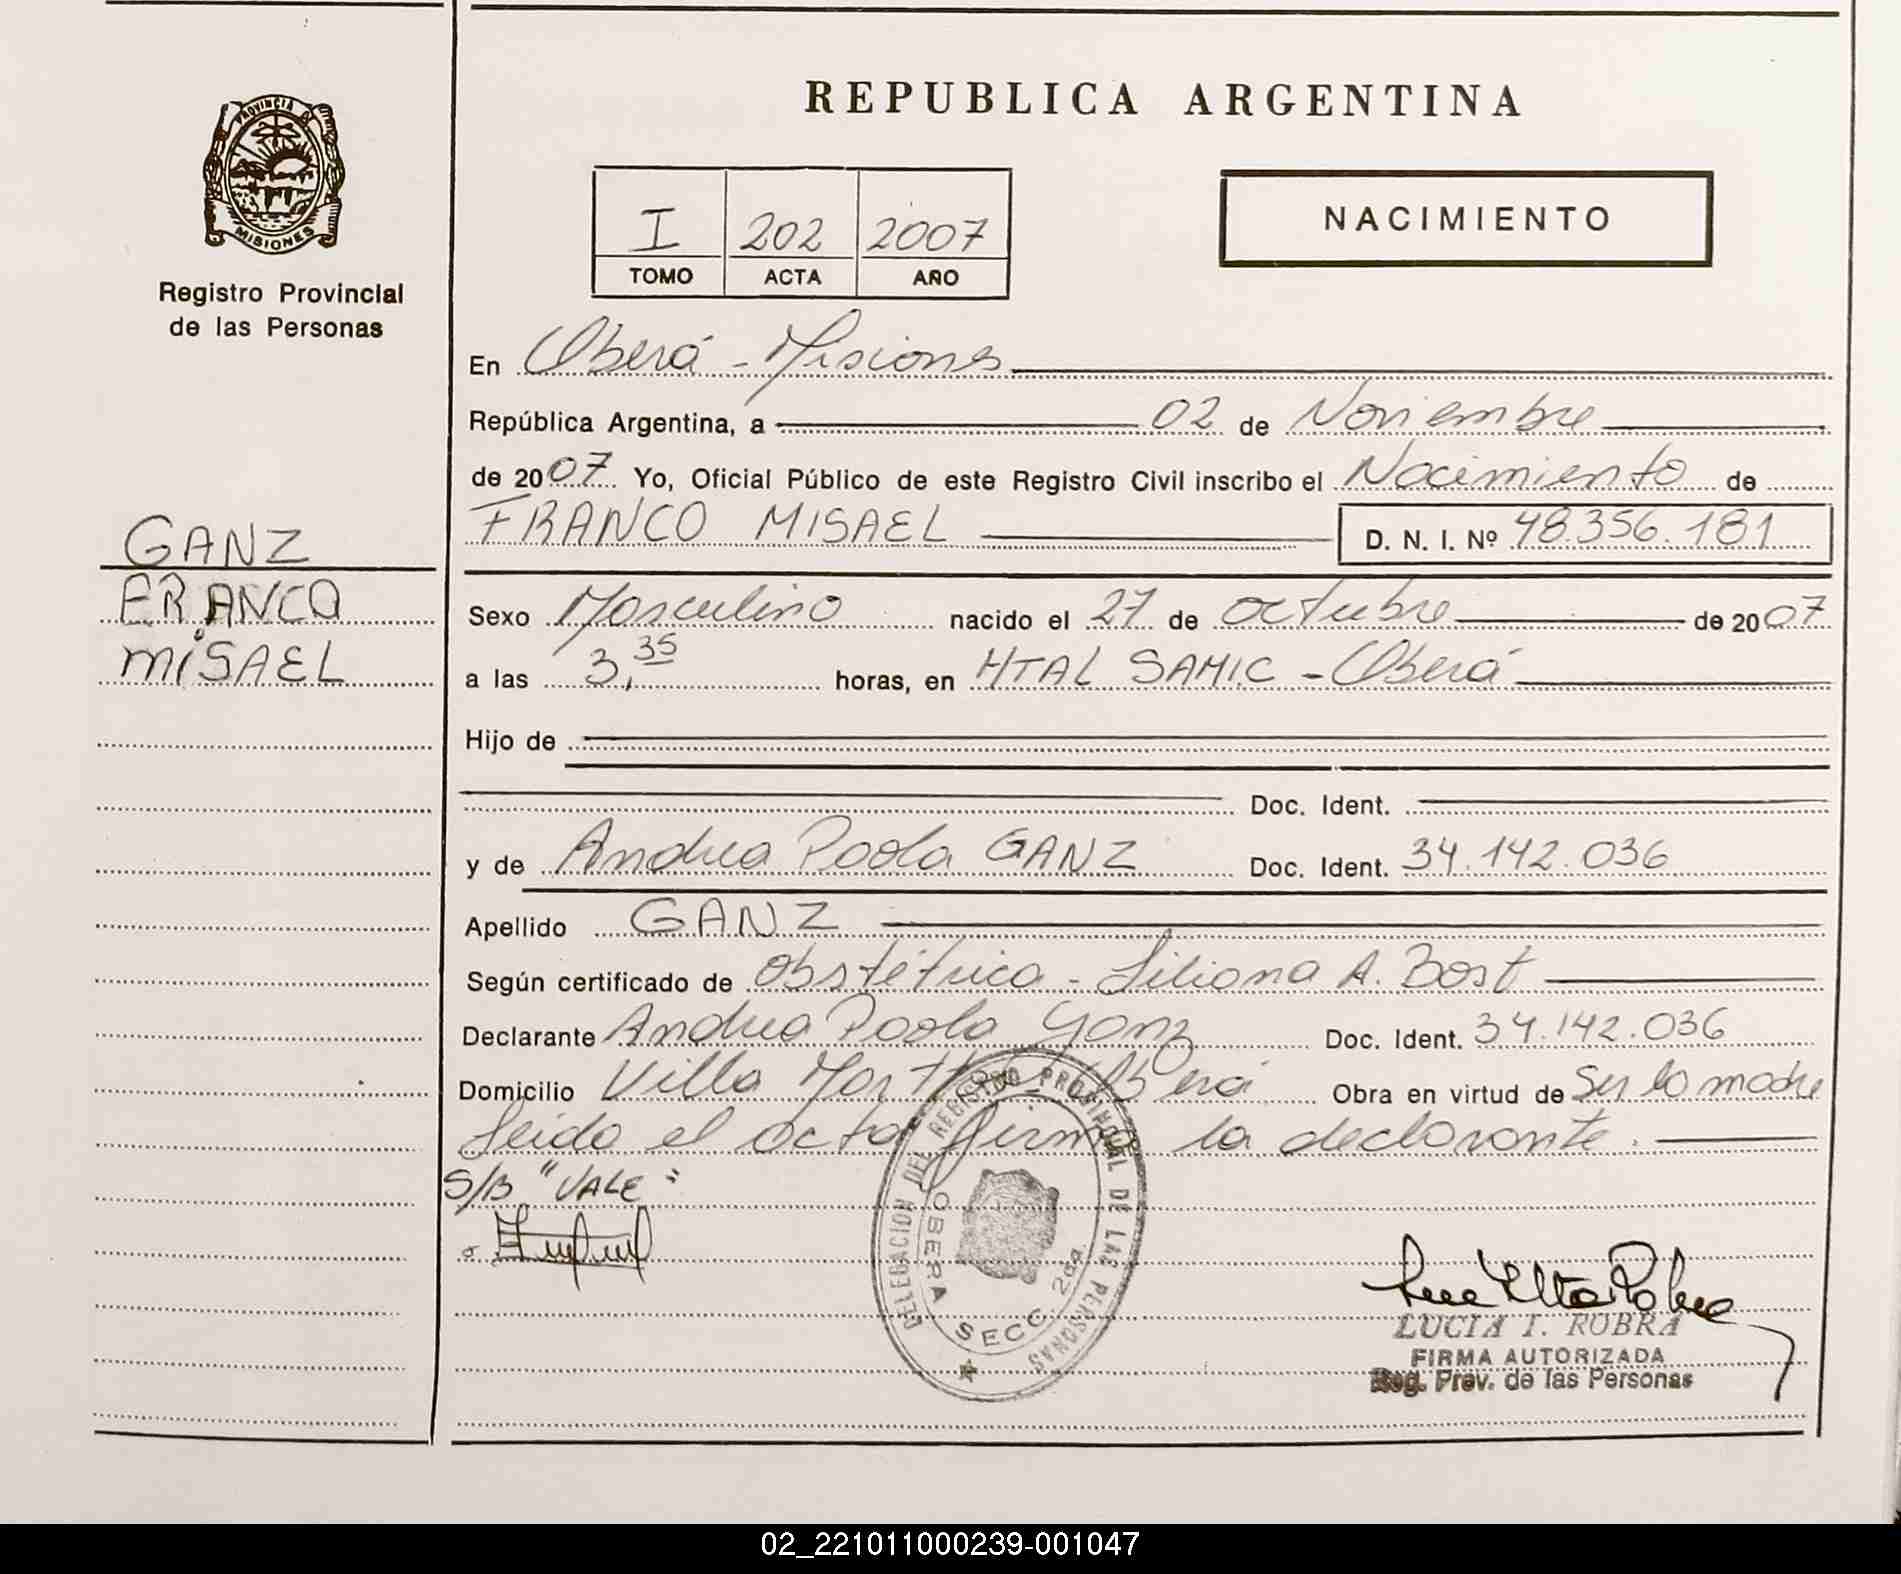 REPUBLICA ARGENTINA
PROVINCIA DE
MISIONES
Registro Provincial
de las Personas
I 202 2007
TOMO ACTA AÑO
NACIMIENTO
En Oberá - Misiones
República Argentina, a 02 de Noviembre
de 2007 Yo, Oficial Público de este Registro Civil inscribo el Nacimiento de
FRANCO MISAEL D. N. I. Nº 48.356.181
GANZ
FRANCO
MiSAEL
Sexo Masculino nacido el 27 de octubre de 2007
a las 3,35 horas, en HTAL SAMIC - Oberá
Hijo de
Doc. Ident.
y de Andrea Paola GANZ Doc. Ident. 34.142.036
Apellido GANZ
Según certificado de Obstétrica - Liliana A. Bost
Declarante Andrea Paola Ganz Doc. Ident. 34.142.036
Domicilio Villa Martha - Oberá Obra en virtud de Ser la madre
Leida el acta firma la declarante.
S/B "VALE"
DELEGACION DEL REGISTRO PROVINCIAL DE LAS PERSONAS
OBERA SECC. 2da
LUCIA I. ROBRA
FIRMA AUTORIZADA
Reg. Prov. de las Personas
02_221011000239-001047